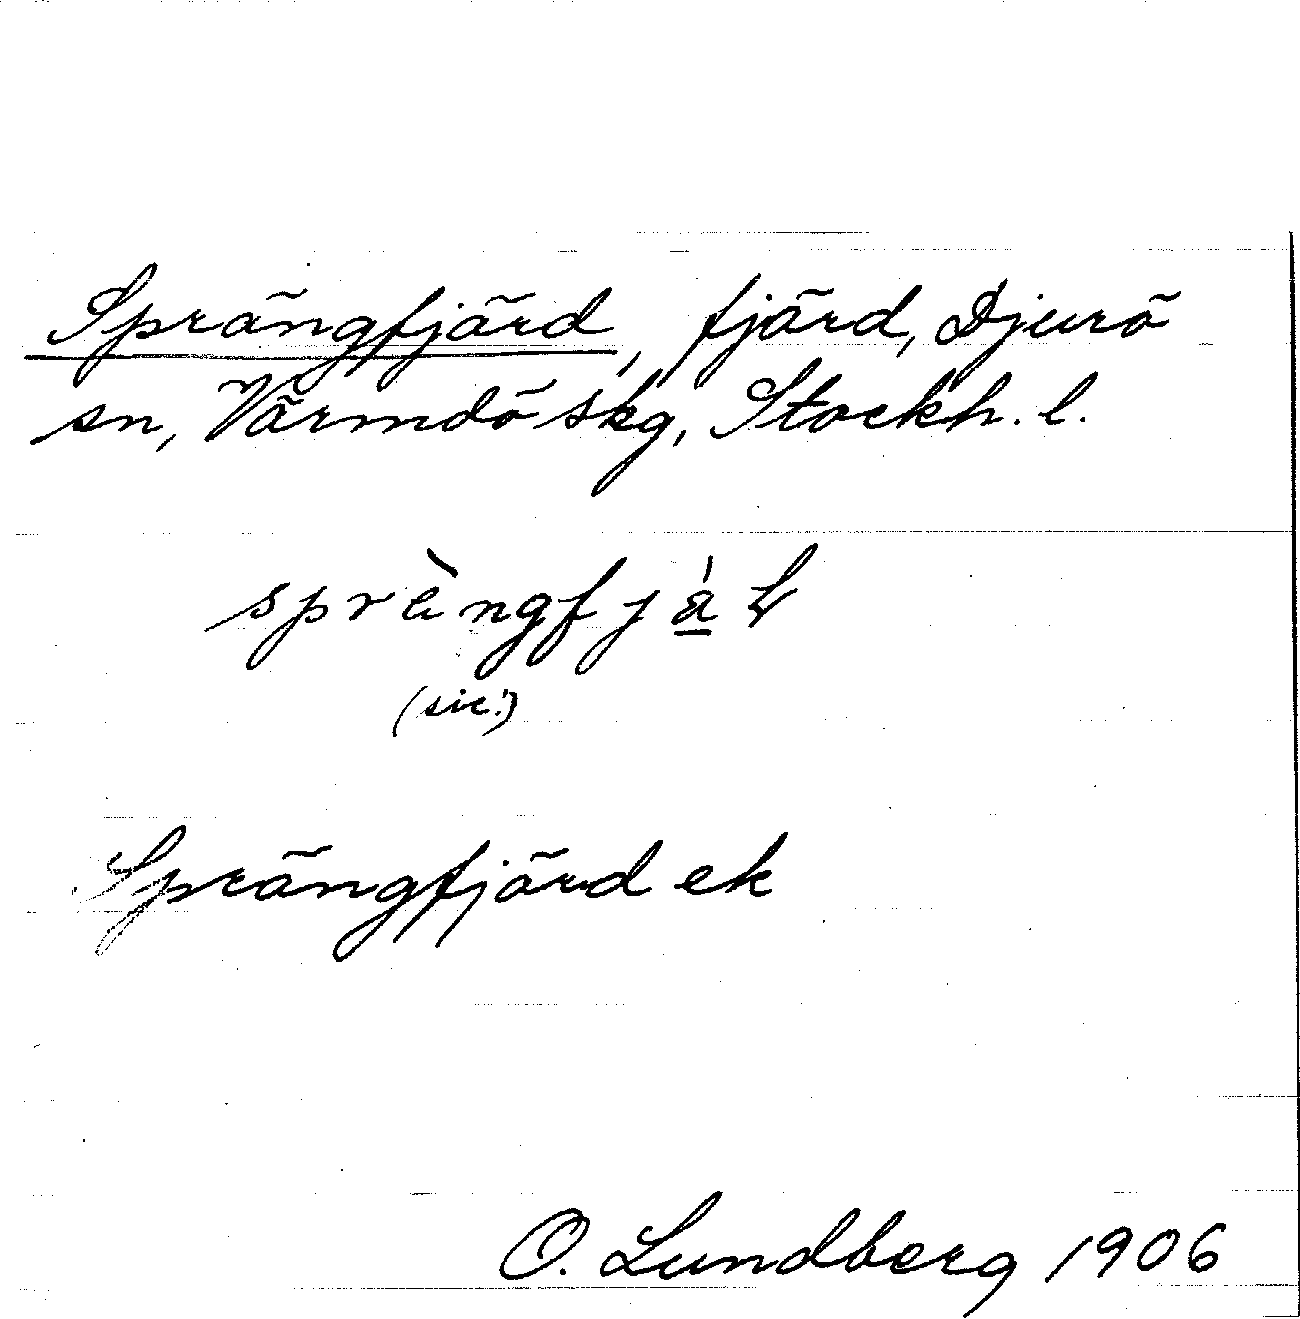 Sprängfjärd, fjärd, Djurö
sn, Värmdö skg, Stockh. l.
(sic!)
Sprängfjärd ek
O. Lundberg 1906